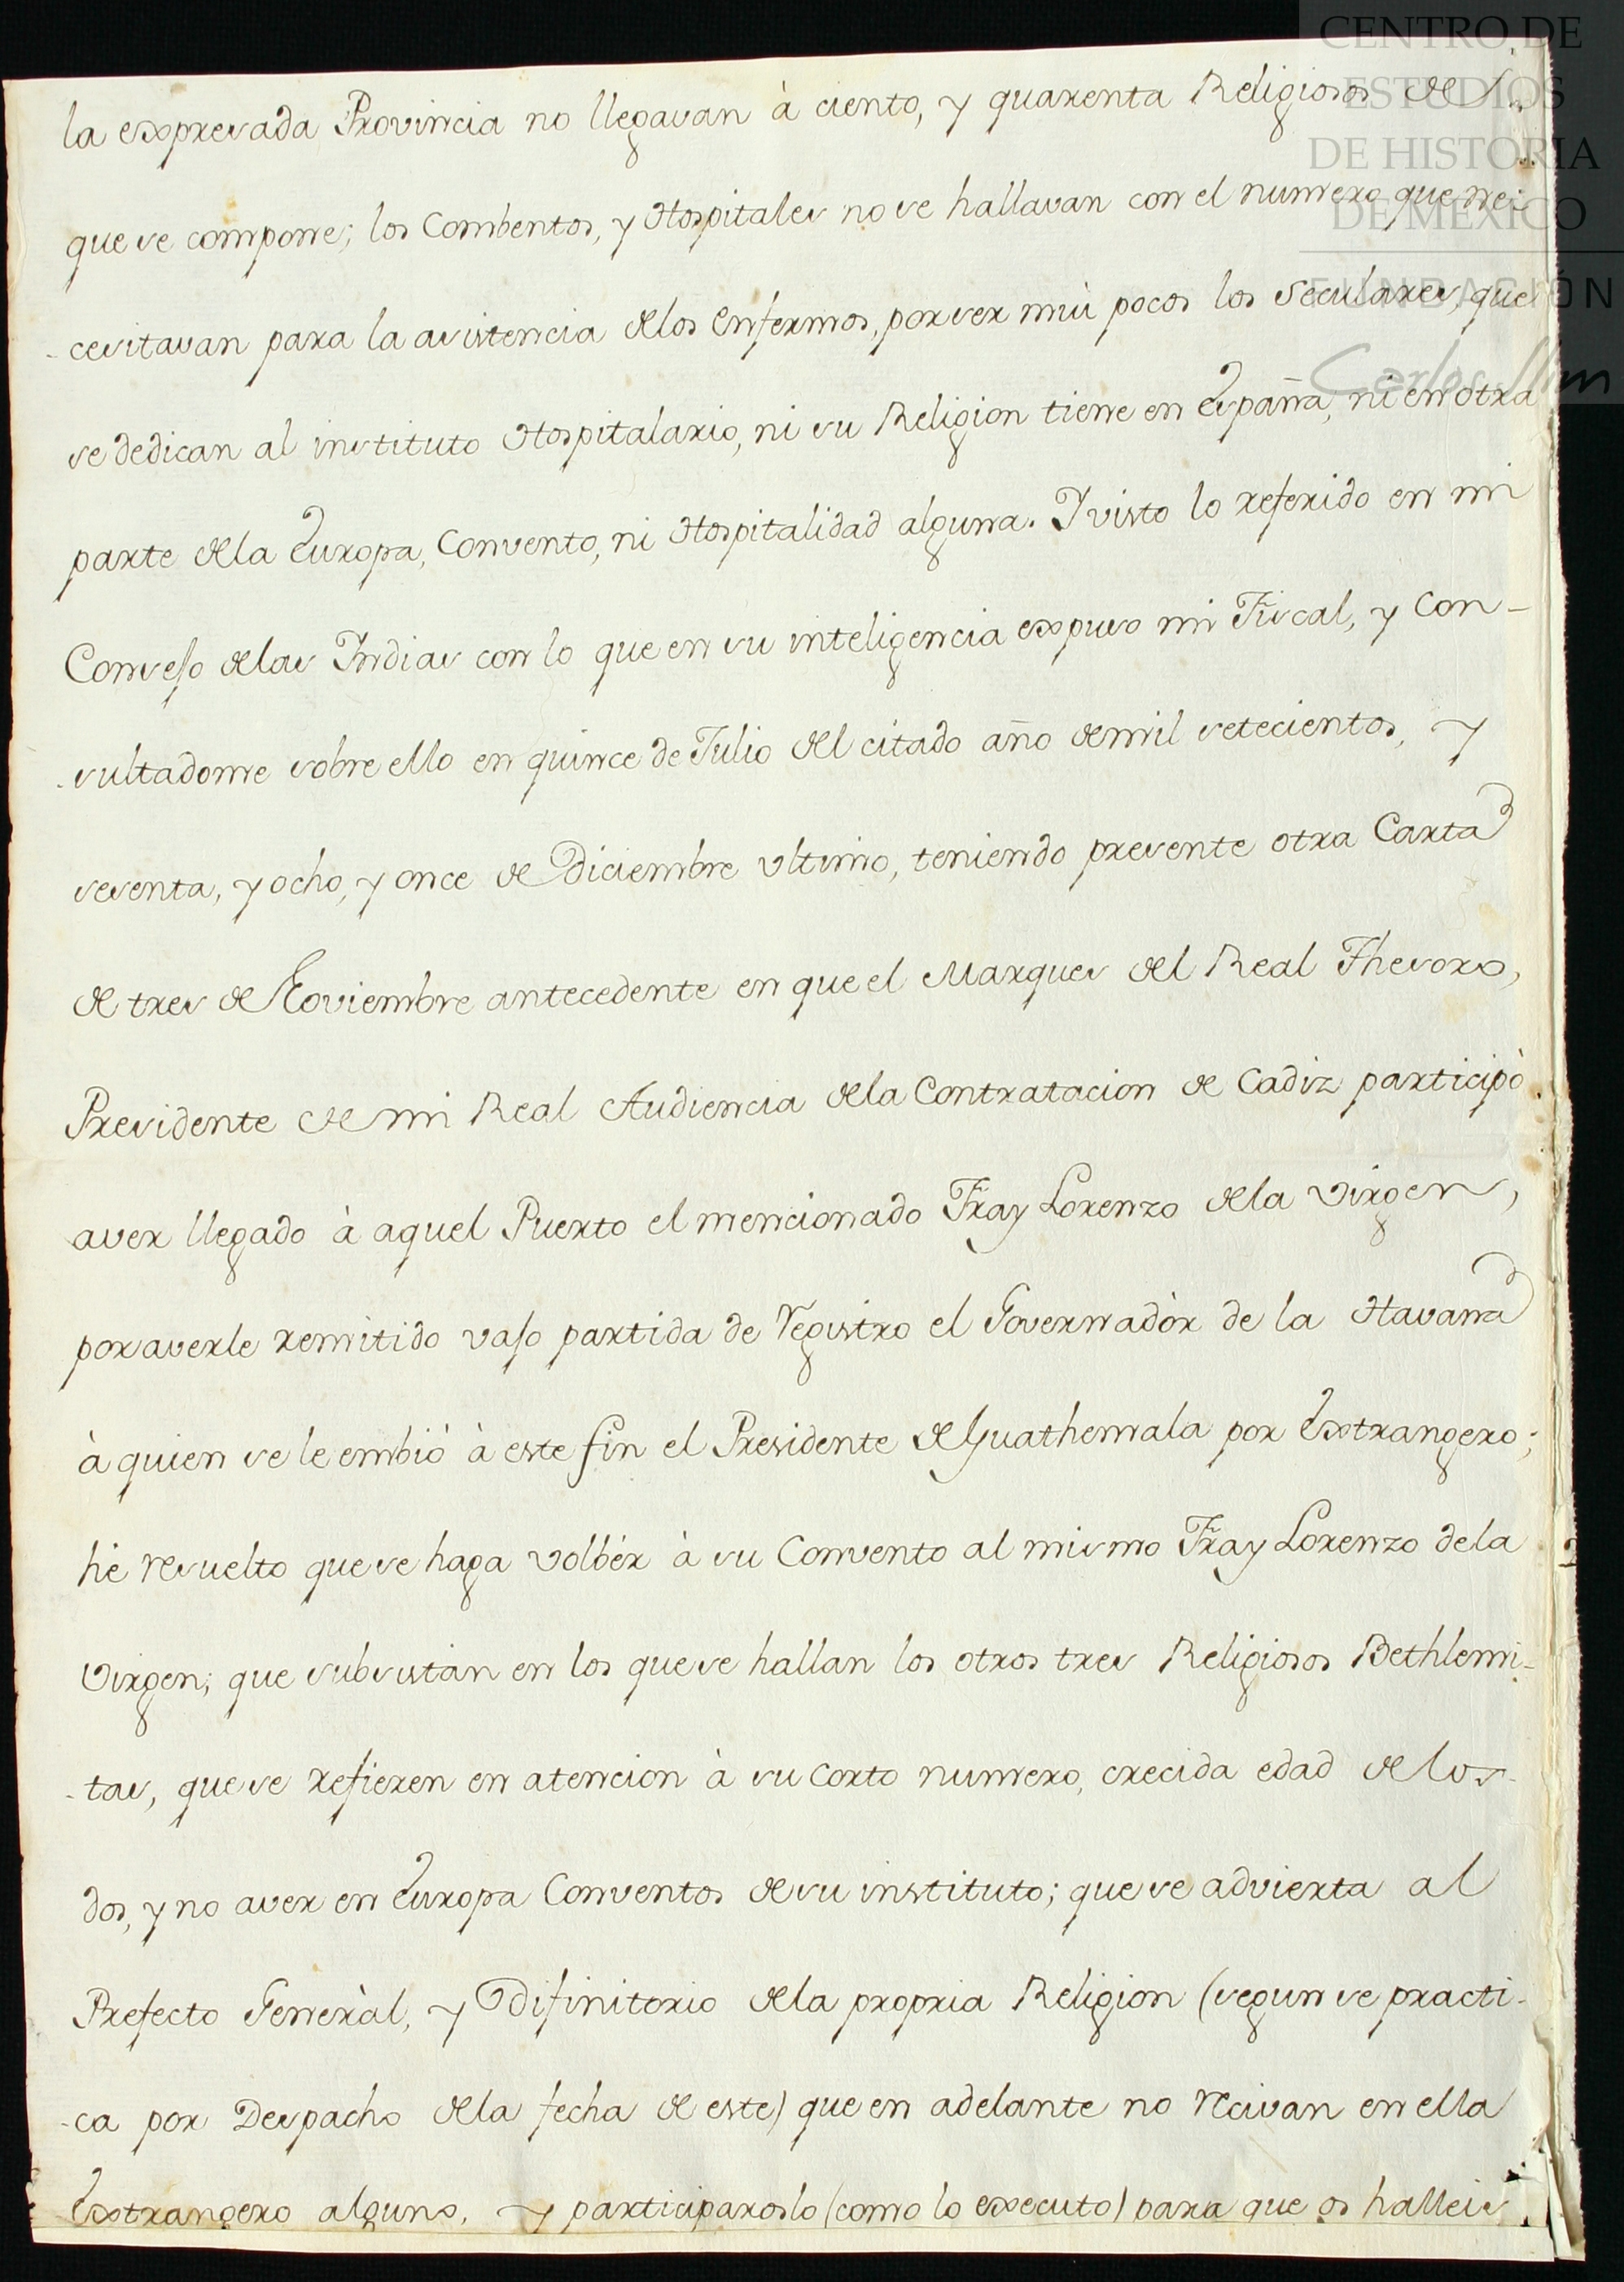 CENTRO DE
ESTUDIOS
DE HISTORIA
DE MEXICO
FUNDACIÓN
Carlos Slim
la expresada Provincia no llegavan à ciento, y quarenta Religiosos de
que se compone; los Combentos, y Hospitales no se hallavan con el numero que ne-
-cesitavan para la asistencia de los enfermos, por ser mui pocos los Seculares, que
se dedican al instituto Hospitalario, ni su Religion tiene en España, ni en otra
parte de la Europa, Convento, ni Hospitalidad alguna. Y visto lo referido en mi
Consejo de las Indias con lo que en su inteligencia expuso mi Fiscal, y con-
-sultadome sobre ello en quince de Julio del citado año de mil setecientos, y
sesenta, y ocho, y once de Diciembre ultimo, teniendo presente otra Carta
de tres de Noviembre antecedente en que el Marques del Real Thesoro,
Presidente de mi Real Audiencia de la Contratacion de Cadiz participò
aver llegado à aquel Puerto el mencionado Fray Lorenzo de la Virgen,
por averle remitido vajo partida de Registro el Governadòr de la Havana
à quien se le embió à este fin el Presidente de Guathemala por Extrangero;
hé resuelto que se haga volbér à su Convento al mismo Fray Lorenzo de la
Virgen; que subsistan en los que se hallan los otros tres Religiosos Bethlemi-
-tas, que se refieren en atencion à su corto numero, crecida edad de los-
dos, y no aver en Europa Conventos de su instituto; que se advierta al
Prefecto Generàl, y Difinitorio de la propria Religion (segun se practi-
-ca por Despacho de la fecha de este) que en adelante no recivan en ella
Extrangero alguno, y participaroslo (como lo executo) para que os halleis